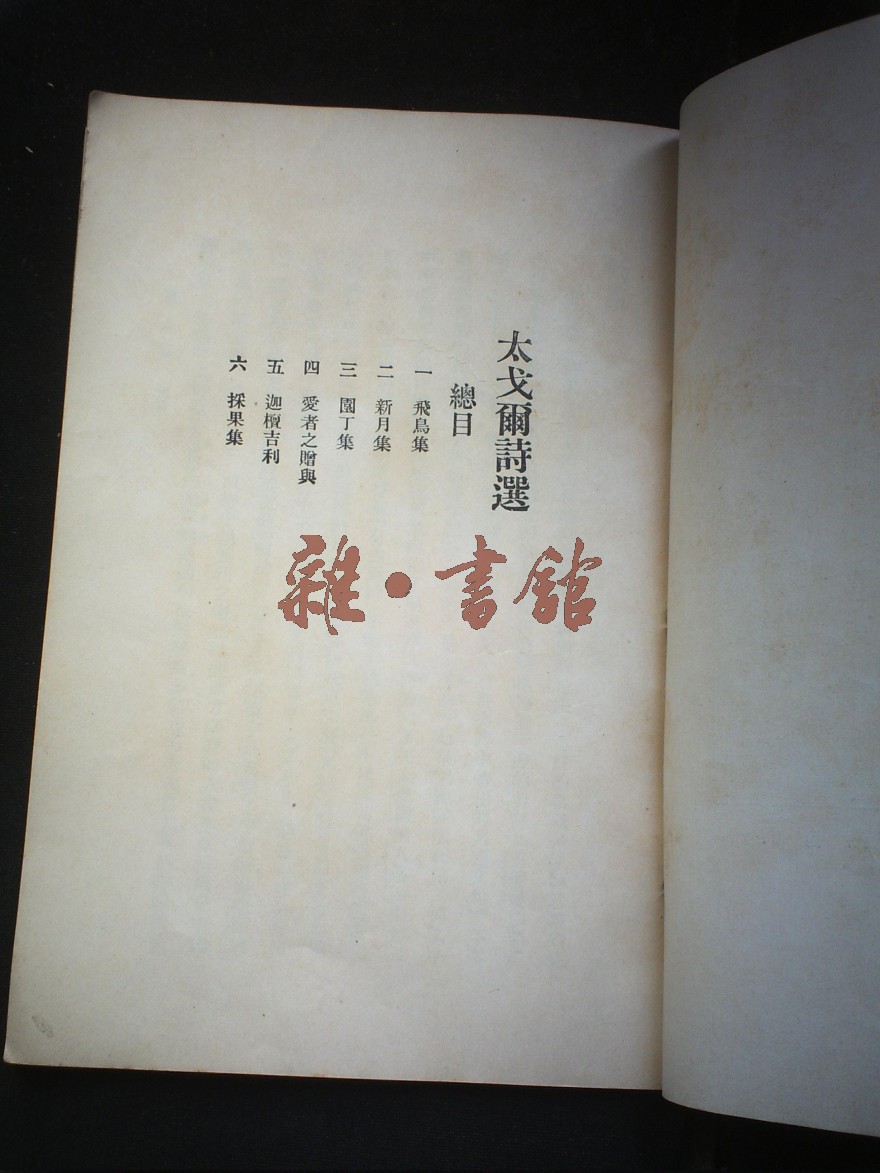 太戈爾詩選
總目
一 飛鳥集
二 新月集
三 園丁集
四 愛者之贈與
五 迦檀吉利
六 採果集
雜·書館